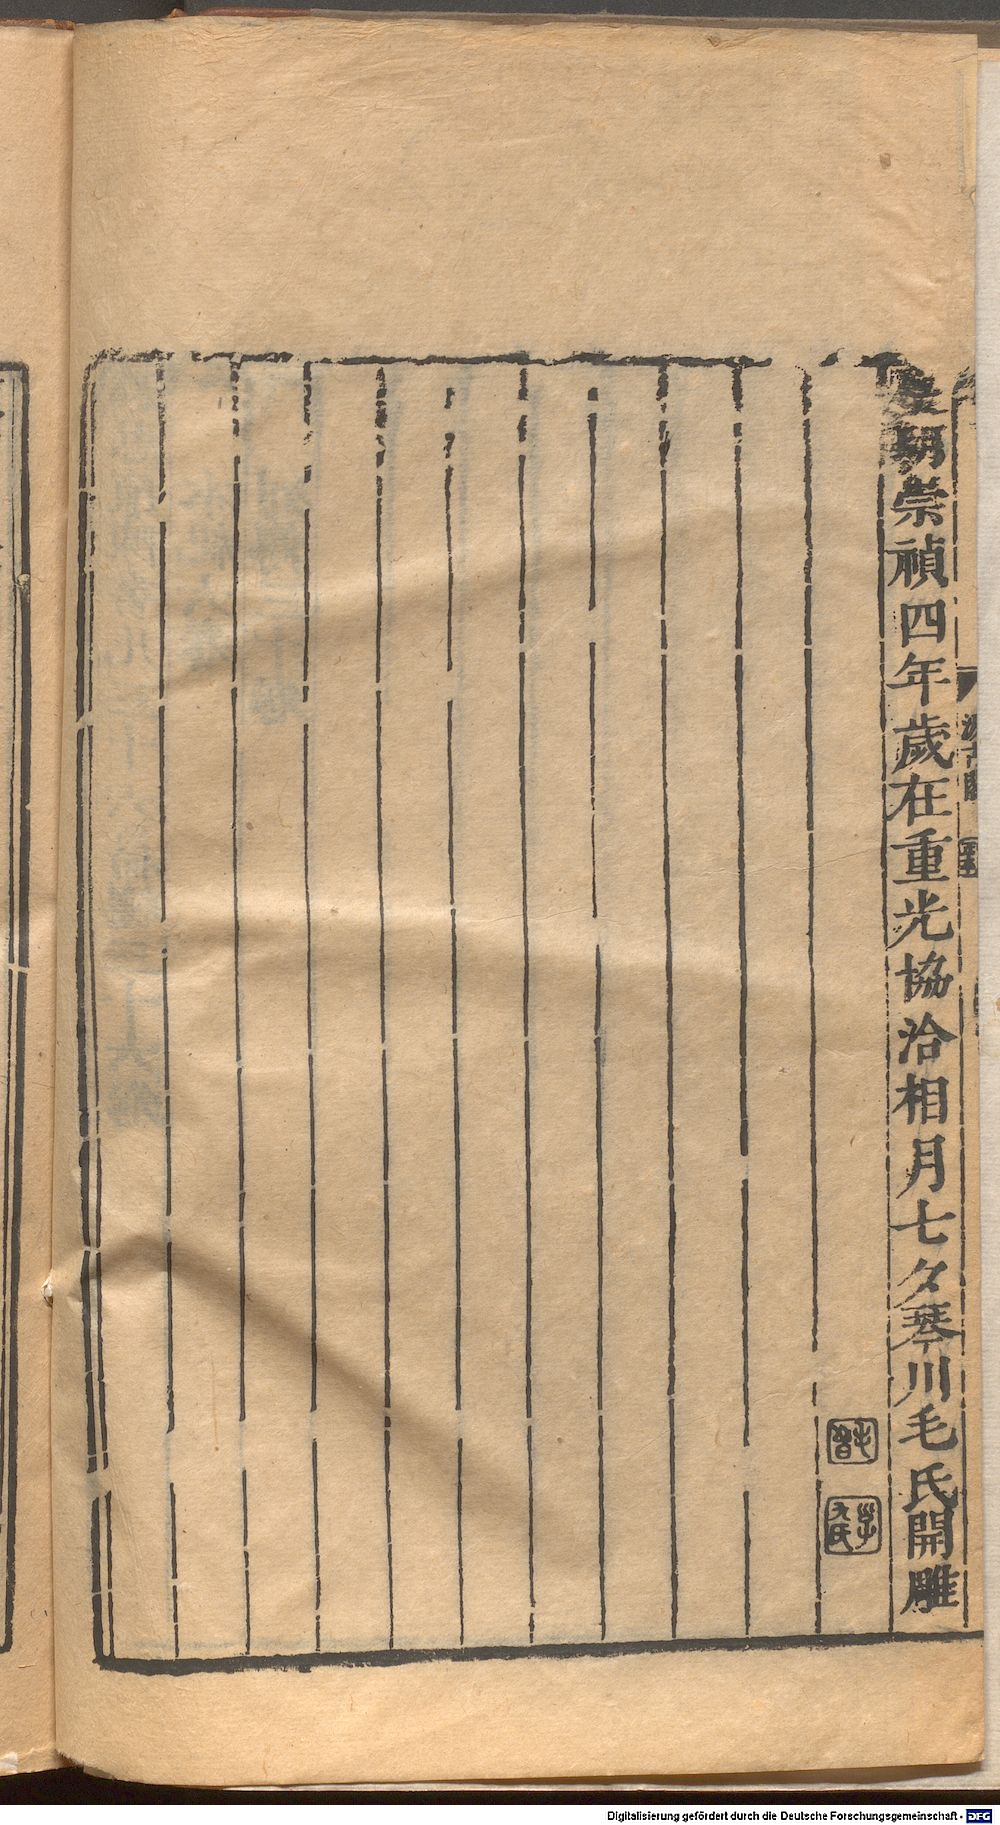 皇明崇禎四年歲在重光協洽相月七夕琴川毛氏開雕
毛晉
子九氏
汲古閣
Digitalisierung gefördert durch die Deutsche Forschungsgemeinschaft - DFG